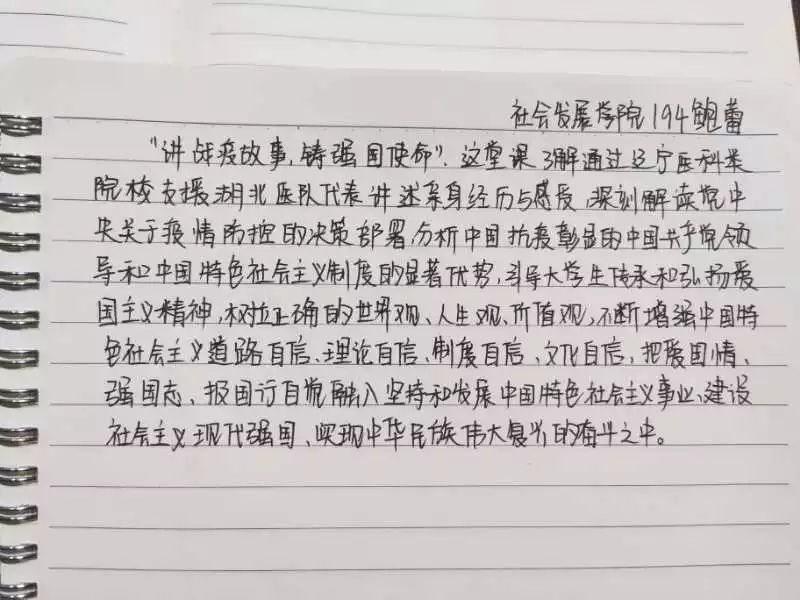 社会发展学院194鲍蕾
"讲战疫故事,铸强国使命".这堂课了解通过辽宁医科类
院校支援湖北医队代表讲述亲身经历与感受,深刻解读党中
央关于疫情防控的决策部署,分析中国抗疫彰显的中国共产党领
导和中国特色社会主义制度的显著优势,引导大学生传承和弘扬爱
国主义精神,树立正确的世界观、人生观、价值观,不断增强中国特
色社会主义道路自信、理论自信、制度自信、文化自信,把爱国情、
强国志、报国行自觉融入坚持和发展中国特色社会主义事业、建设
社会主义现代强国、实现中华民族伟大复兴的奋斗之中。